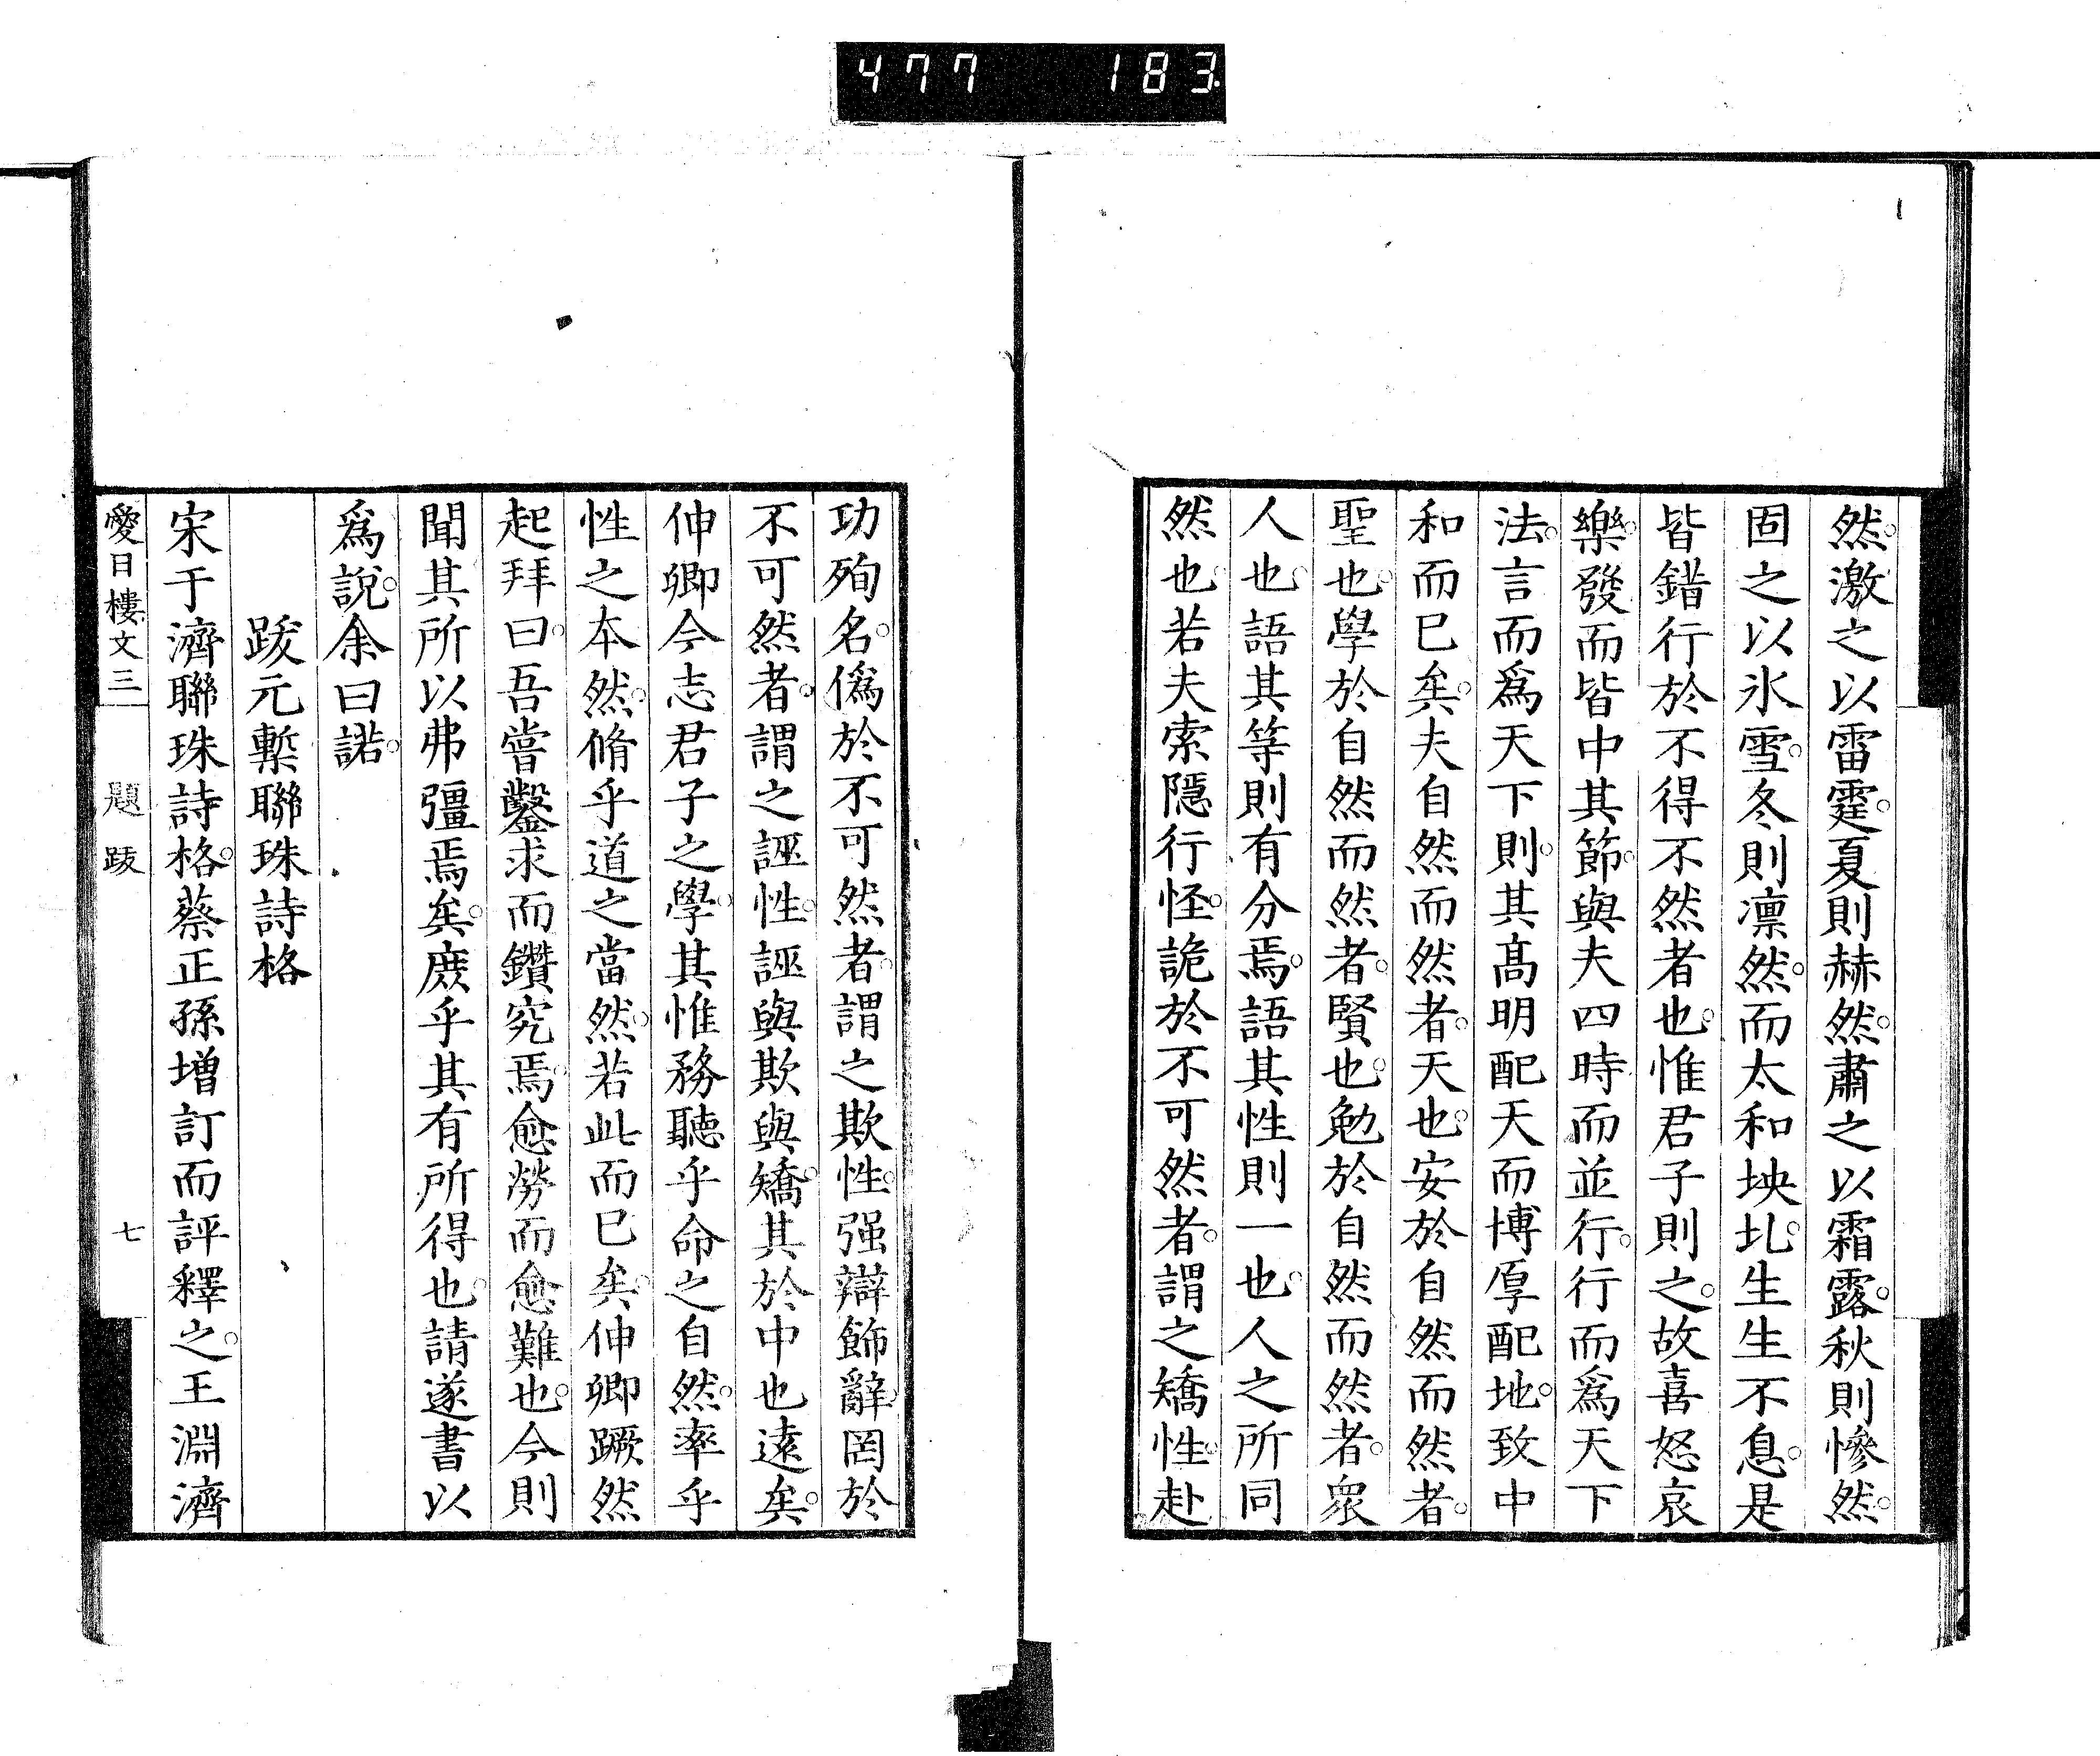 477 183
然。激之以雷霆。夏則赫然。肅之以霜露。秋則慘然。
固之以氷雪。冬則凛然。而太和坱圠。生生不息。是
皆錯行於不得不然者也。惟君子則之。故喜怒哀
樂。發而皆中其節。與夫四時而並行。行而爲天下
法。言而爲天下則。其髙明配天而博厚配地。致中
和而已矣。夫自然而然者。天也。安於自然而然者。
聖也。學於自然而然者。賢也。勉於自然而然者。衆
人也。語其等則有分焉。語其性則一也。人之所同
然也。若夫索隱行怪。詭於不可然者。謂之矯性。赴
功殉名。僞於不可然者。謂之欺性。强辯飾辭。罔於
不可然者。謂之誣性。誣與欺與矯。其於中也遠矣。
伸卿今志君子之學。其惟務聽乎命之自然。率乎
性之本然。脩乎道之當然。若此而已矣。伸卿蹶然
起拜曰。吾嘗鑿求而鑽究焉。愈勞而愈難也。今則
聞其所以弗彊焉矣。庶乎其有所得也。請遂書以
爲說。余曰諾。
跋元槧聯珠詩格
宋于濟聯珠詩格。蔡正孫増訂而評釋之。王淵濟
愛日樓文三 題跋 七